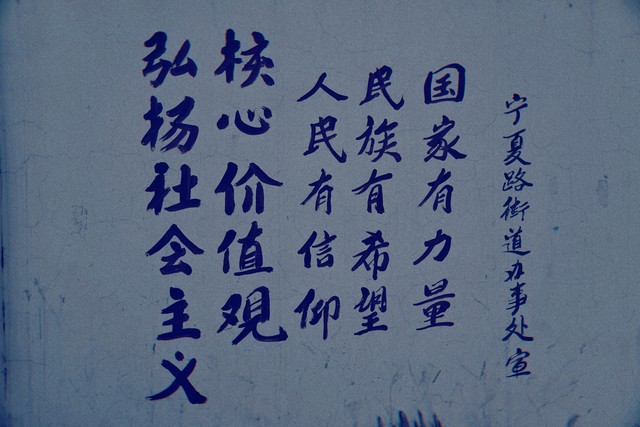 弘扬社会主义
核心价值观
人民有信仰
民族有希望
国家有力量
宁夏路街道办事处宣